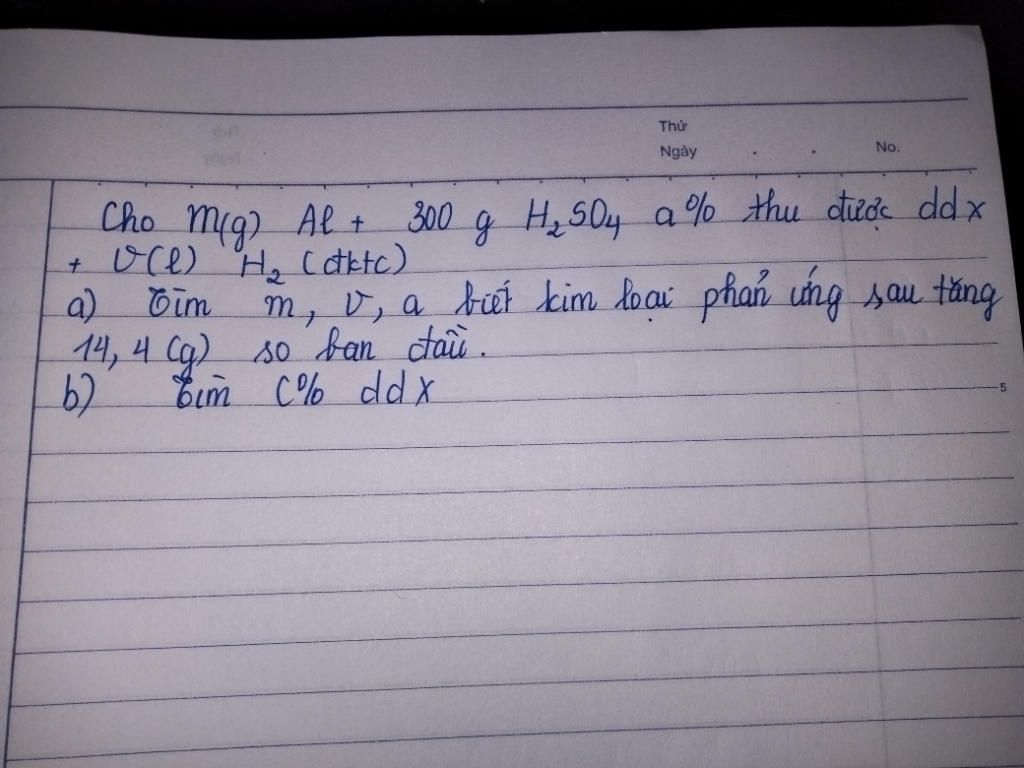 Thứ
Ngày . . No.
Cho m(g) Al + 300 g H₂SO₄ a% thu được ddx
+ V(l) H₂ (đktc)
a) Tìm m, v, a biết kim loại phản ứng sau tăng
14,4 (g) so ban đầu.
b) Tìm C% ddx
5